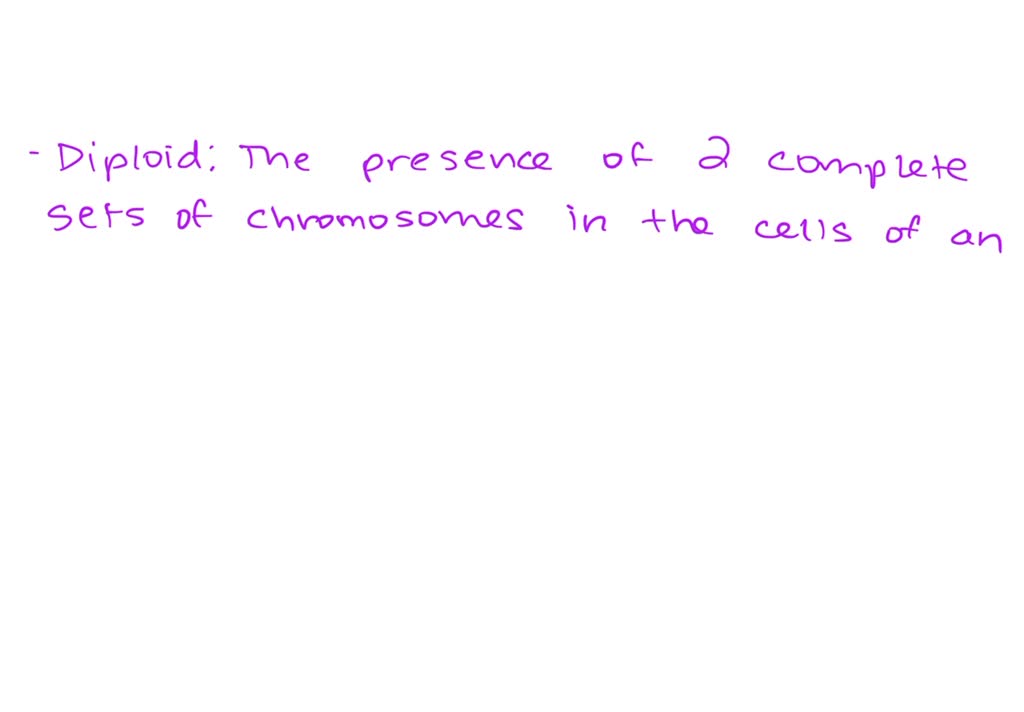 - Diploid: The presence of 2 complete
sets of chromosomes in the cells of an